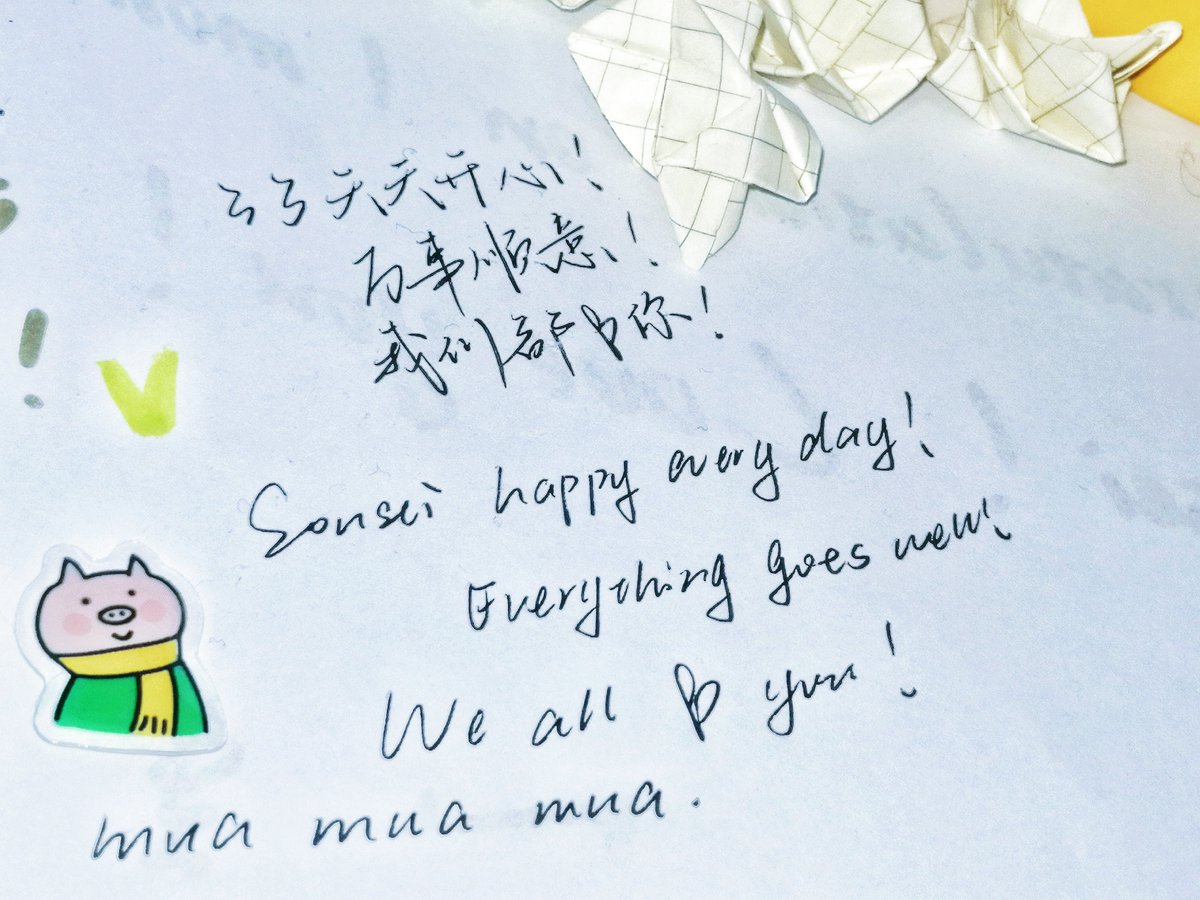 天天开心！
万事顺意！
我们都♡你！
Sensei happy every day!
Everything goes new!
We all ♡ you!
mua mua mua.